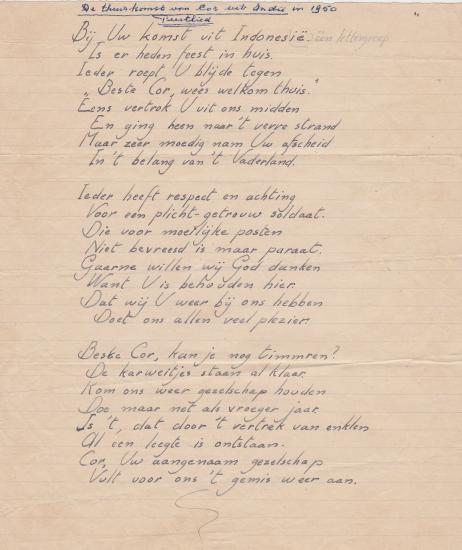 De thuiskomst van Cor uit Indië in 1950
Feestlied
Bij Uw komst uit Indonesië. één lettergreep
Is er heden feest in huis.
Ieder roept U blijde tegen
„Beste Cor, wees welkom thuis."
Eens vertrok U uit ons midden
En ging heen naar 't verre strand
Maar zeer moedig nam Uw afscheid
In 't belang van 't Vaderland.
Ieder heeft respect en achting
Voor een plicht-getrouw soldaat.
Die voor moeilijke posten
Niet bevreesd is maar paraat.
Gaarne willen wij God danken
Want U is behouden hier.
Dat wij U weer bij ons hebben
Doet ons allen veel plezier.
Beste Cor, kun je nog timmren?
De karweitjes staan al klaar.
Kom ons weer gezelschap houden
Doe maar net als vroeger jaar.
Is 't, dat door 't vertrek van enklen
Al een leegte is ontstaan.
Cor, Uw aangenaam gezelschap
Vult voor ons 't gemis weer aan.